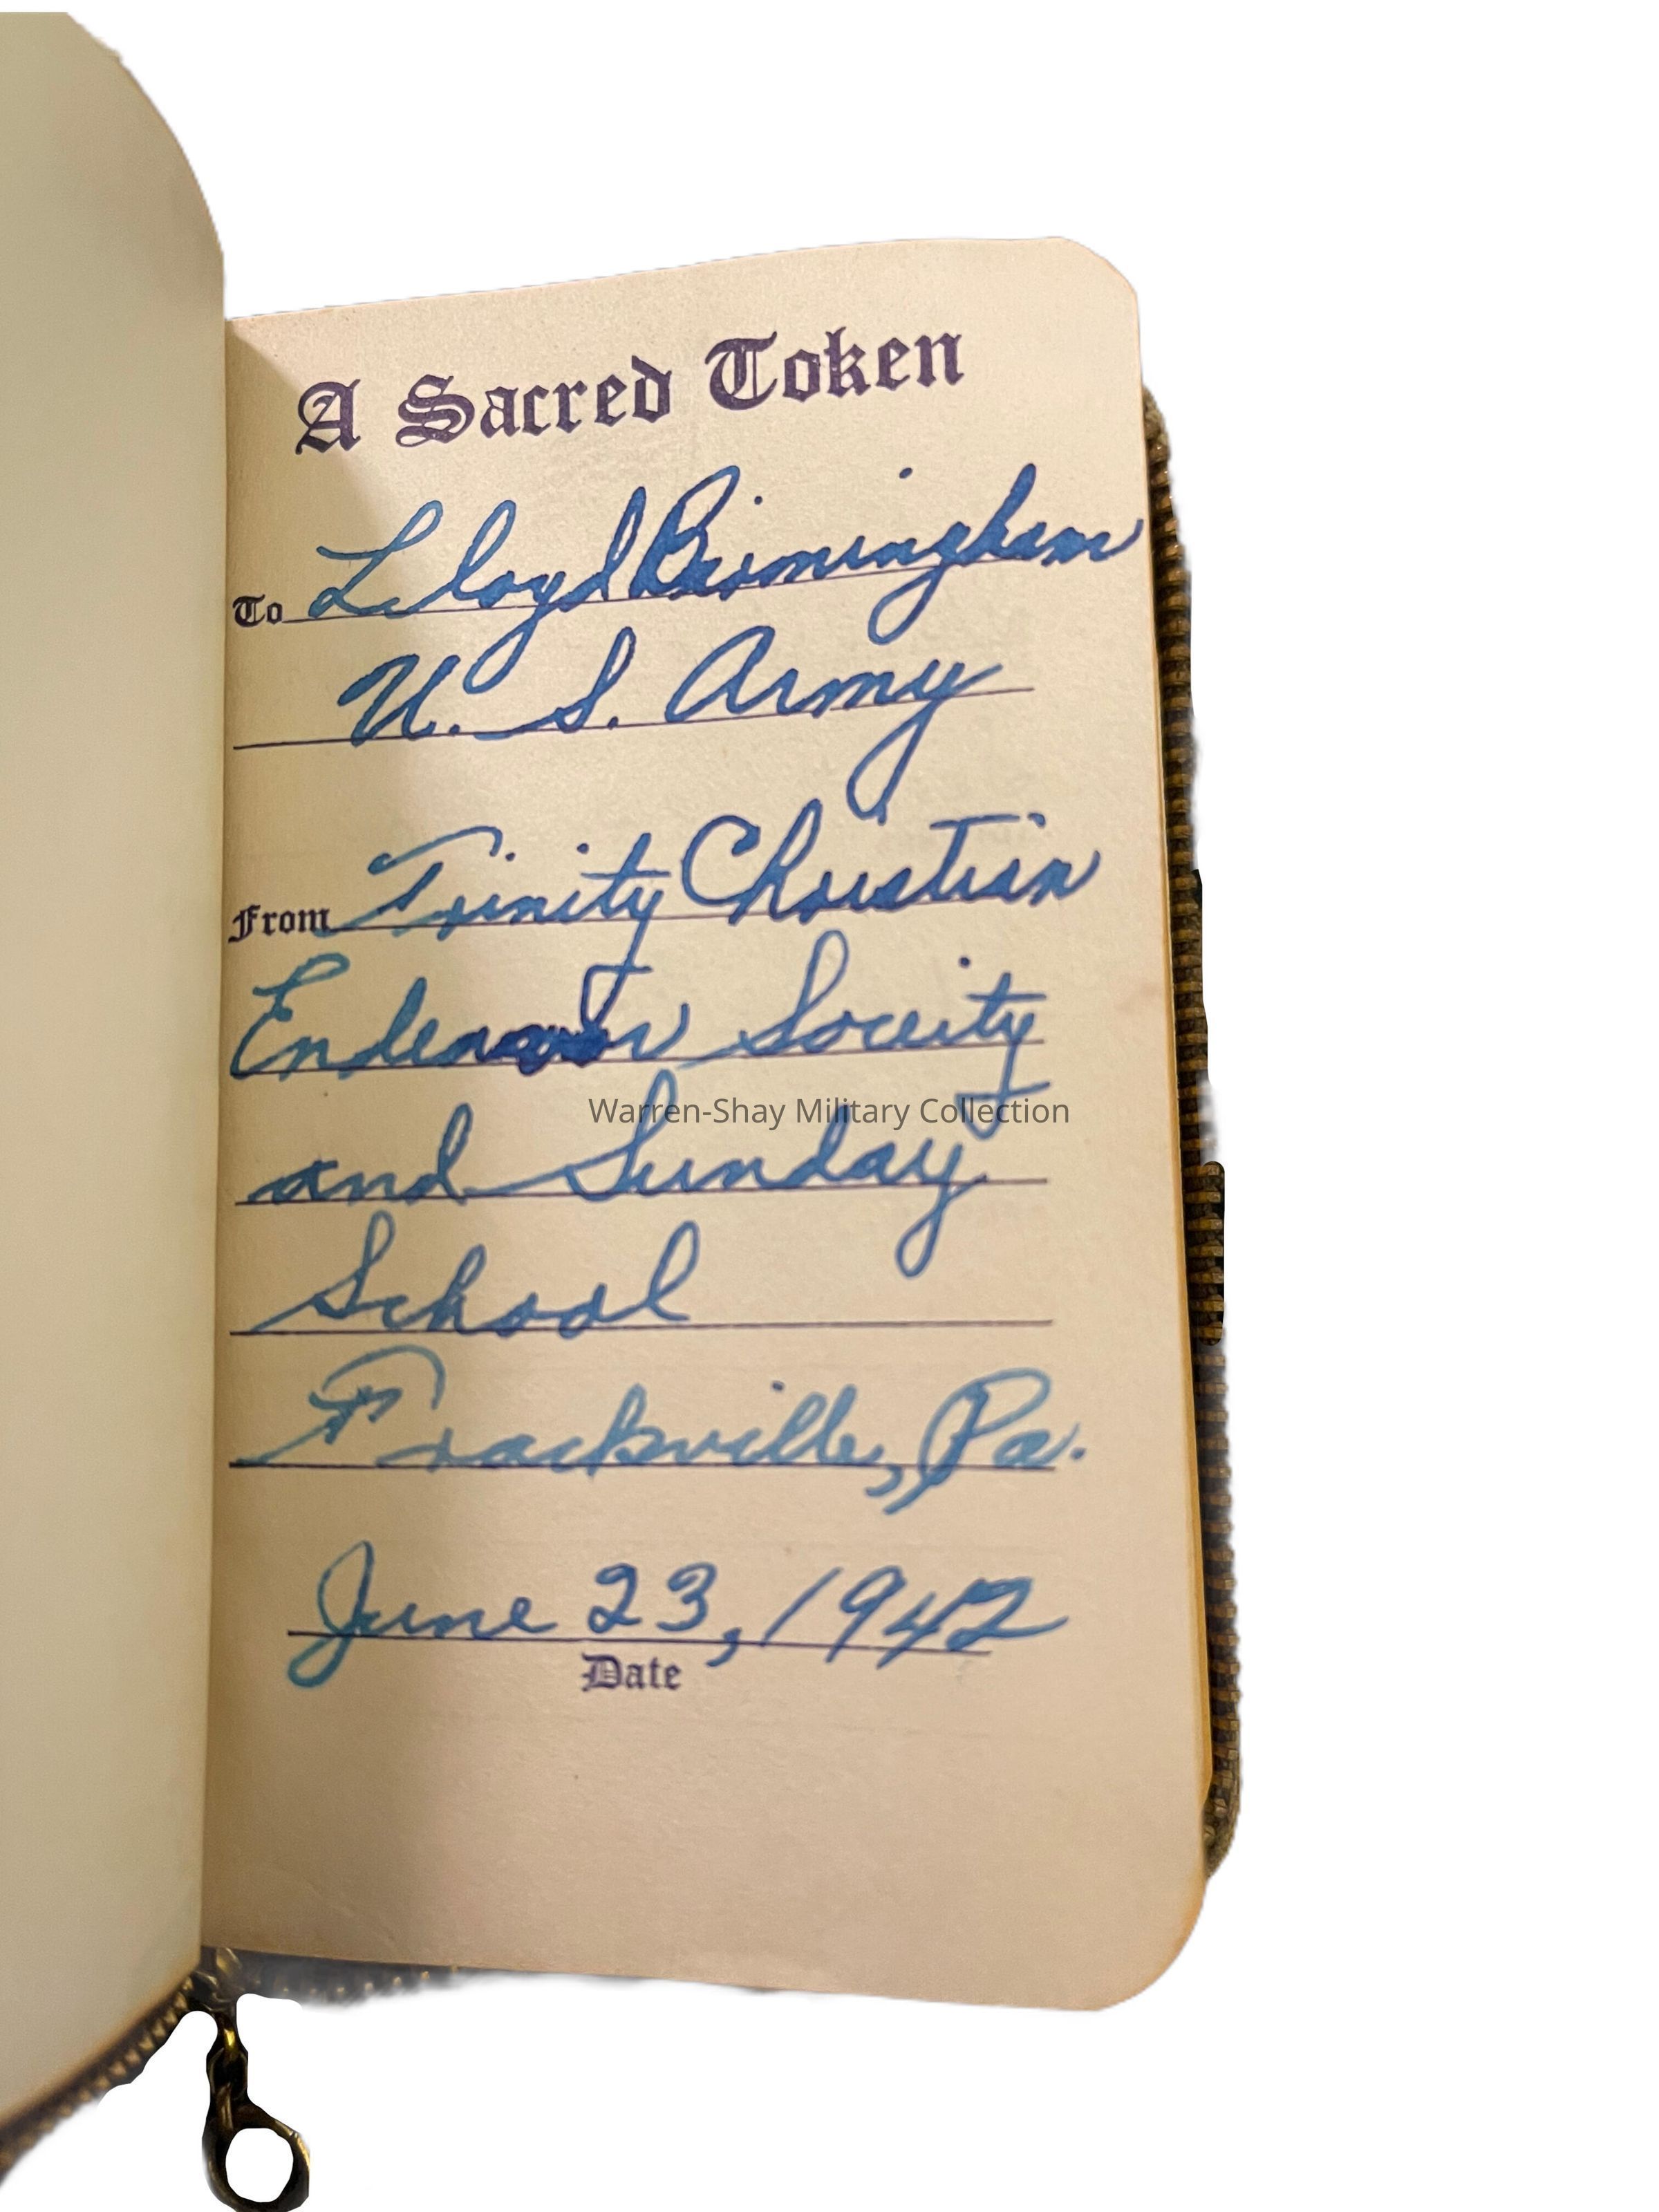 A Sacred Token
To Lloyd Birmingham
U. S. Army
From Trinity Christian
Endeavor Soceity
and Sunday
Warren-Shay Military Collection
School
Frackville, Pa.
June 23, 1942
Date